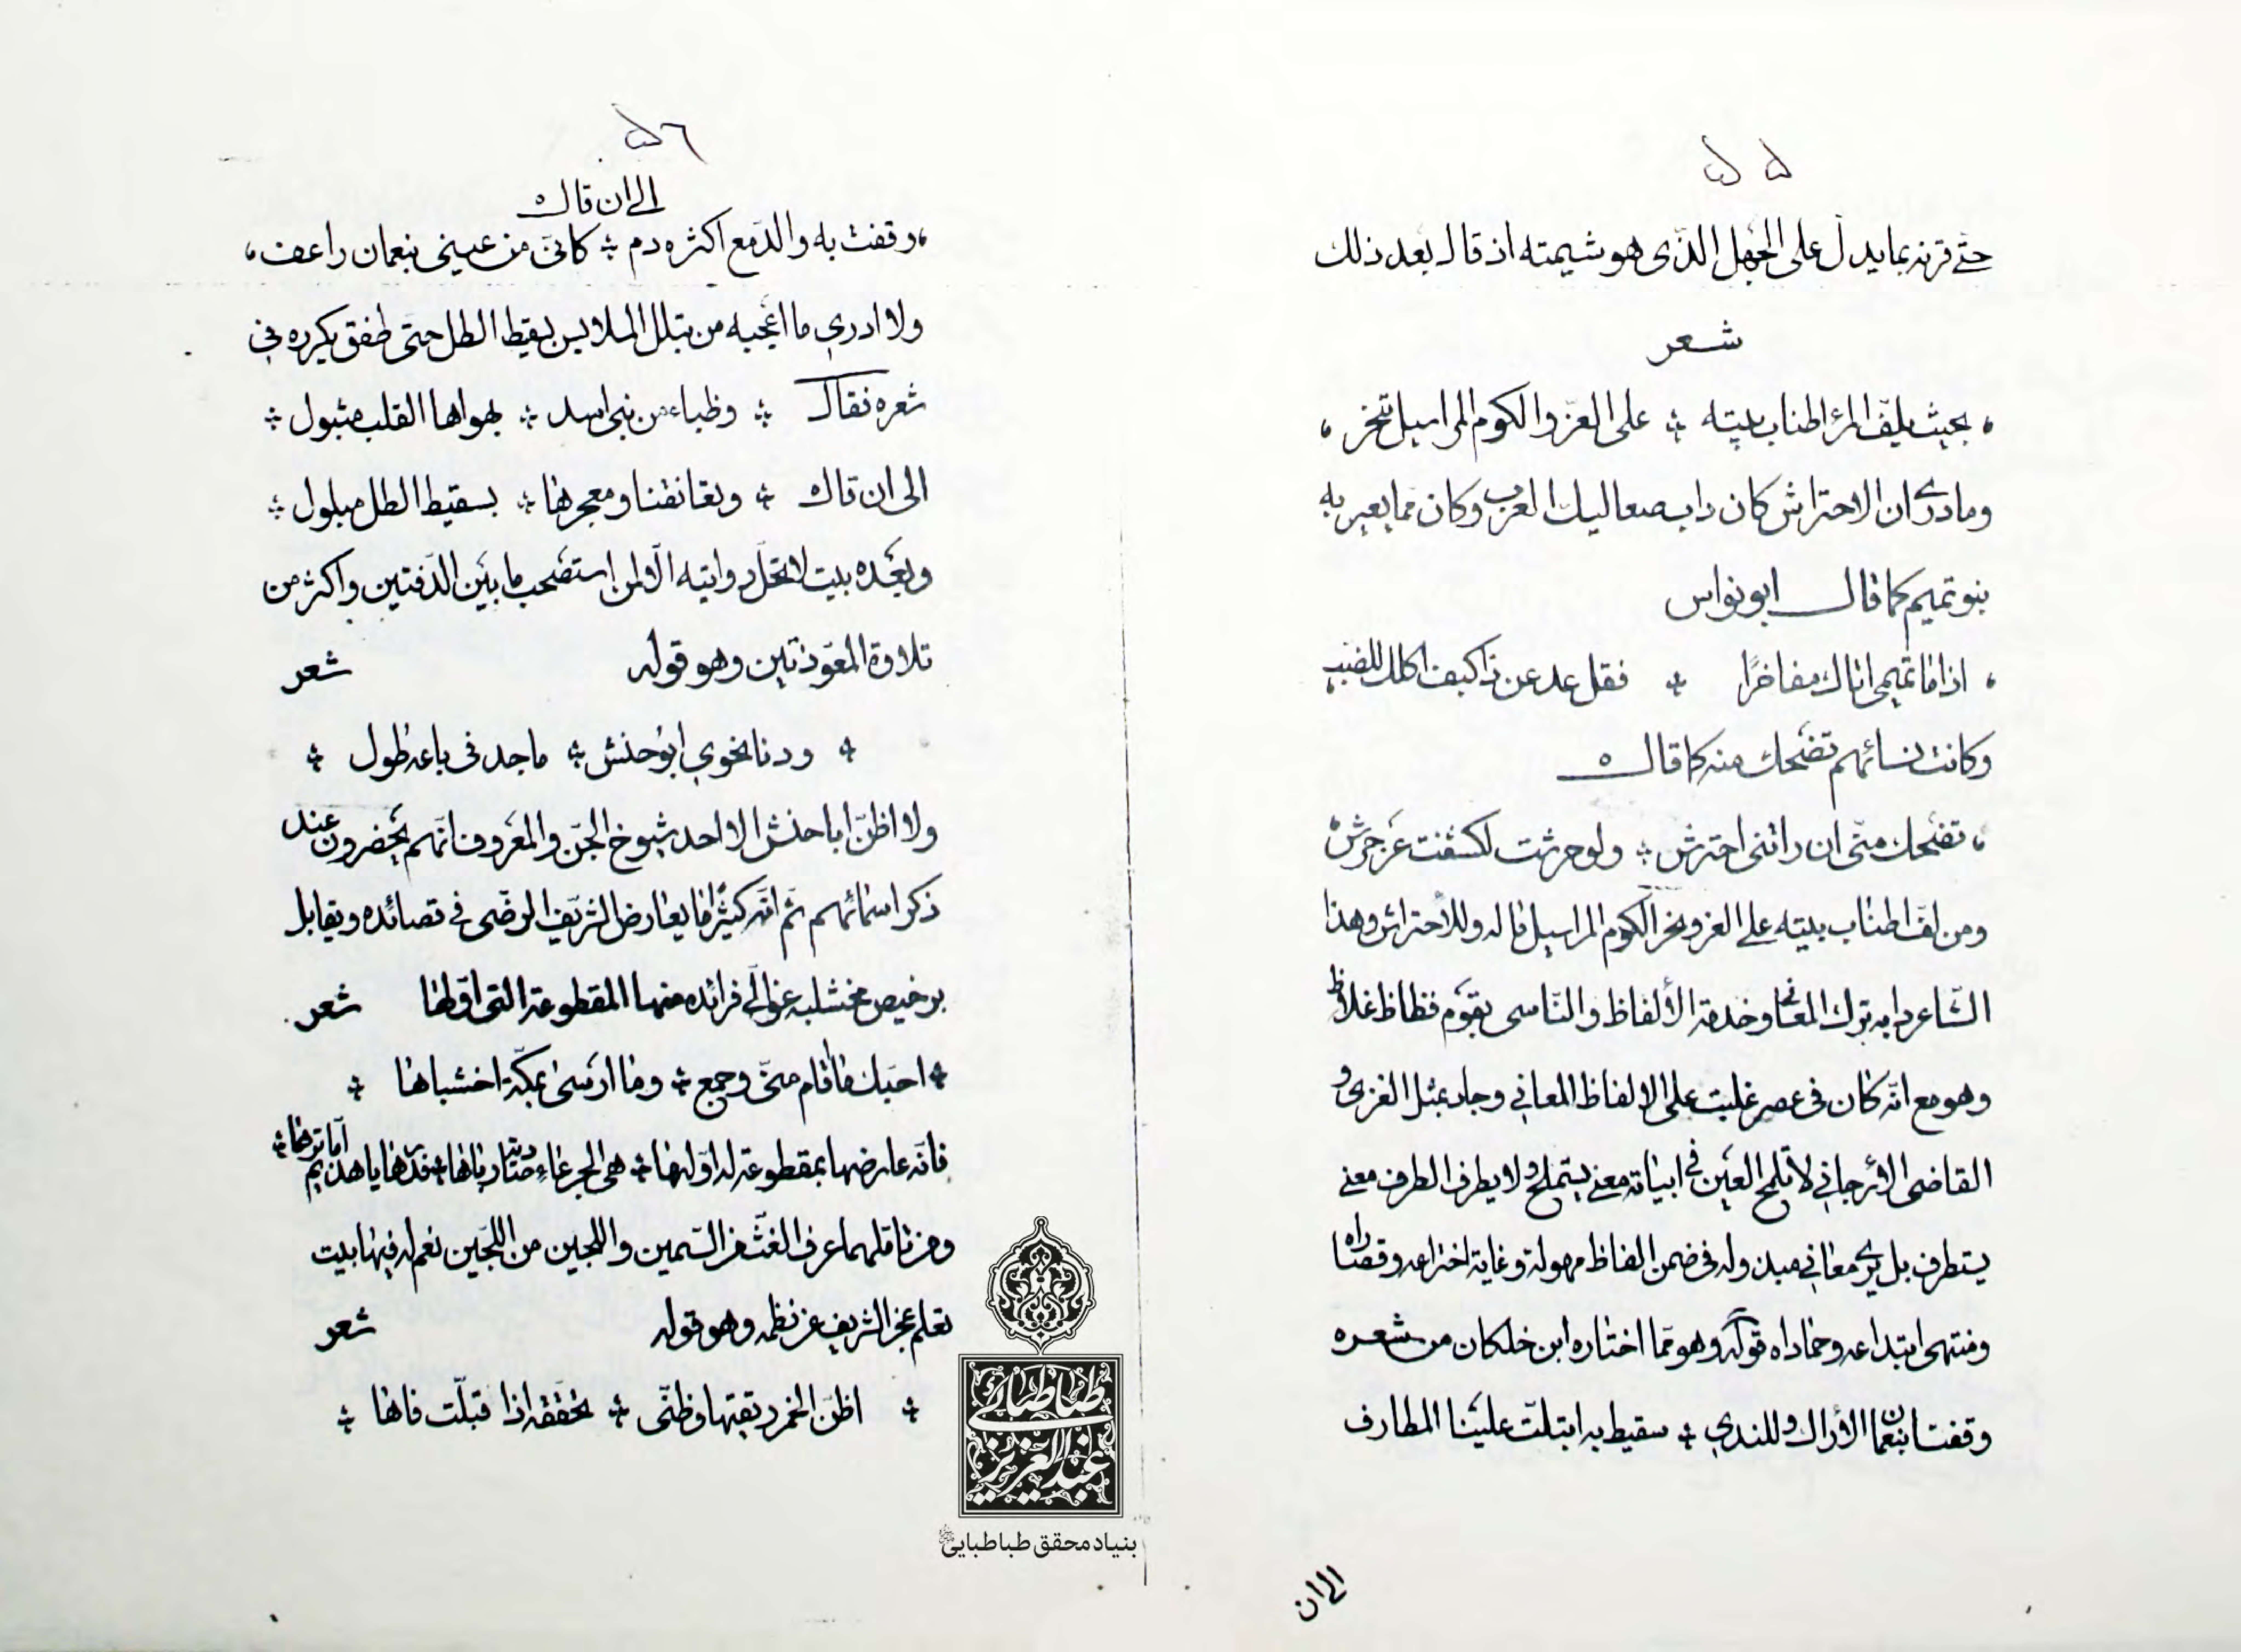 ٥٥
حتّى قرنه بما يدلّ على الجهل الّذى هو شيمته اذ قال بعد ذلك
شعر
بحيث يلفّ المرء اطناب بيته على العزّ والكوم المراسيل تنحر
ومادرى ان الاحتراش كان داب صعاليك العرب وكان ممّا يعير به
بنو تميم كما قال ابونواس
اذا ما تميمى اتاك مفاخرًا فقل عد عن ذا كيف اكلك للضب
وكانت نسائهم تضحك منه كما قال
تضحك منّى ان راتنى احترش ولو حرشت لكشفت عن حرش
ومن لفّ اطناب بيته على العز ونحر الكوم المراسيل ماله وللأحتراش وهذا
الشّاعر دابه ترك المعانى وخدمة الألفاظ والتّاسى بقوم فظاظ غلاظ
وهو مع انّه كان فى عصر غلبت على الالفاظ المعاني وجاد بمثل الغزى و
القاضى الأرجاني لا تلمح العين فى ابياته معنى يستملح ولا يطرف الطرف معنى
يستطرف بل يرى معانى مبذوله فى ضمن الفاظ مهولة وغاية اختراعه وقصاراه
ومنتهى ابتداعه وحماداه قوله وهو ممّا اختاره ابن خلكان من شعره
وقفنا بنعمان الأراك وللندى سقيط به ابتلّت علينا المطارف
الى ان
٥٦
الى ان قال
وقفت به والدّمع اكثره دم كانّى من عينى بنعمان راعف
ولا ادرى ما اعجبه من تبلل الملابس بسقيط الطل حتى طفق يكرره في
شعره فقال وظباء من بنى اسد بهواها القلب متبول
الى ان قال وتعانقنا ومعجرها بسقيط الطل مبلول
وبعده بيت لا تحلّ روايته الّا لمن استصحب ما بين الدّفتين واكثر من
تلاوة المعوّذتين وهو قوله شعر
ودنا نحوى ابوحنش ماجد فى باعه طول
ولا اظنّ اباحنش الا احد شيوخ الجنّ والمعروف انّهم يحضرون عند
ذكر اسمائهم ثم انّه كثيرًا ما يعارض الشّريف الرضّى فى قصائده ويقابل
برخيص مخشلبه غوالي فرائده منها المقطوعة التى اوّلها شعر
احبّك ما اقام منّى وجمع وما ارسى بمكّة اخشباها
فانّه عارضها بمقطوعة له اوّلها هى الجرعاء صادية رباها فذرها ياهذيم اما تراها
ومن تاملهما عرف الغثّ من السّمين واللجين من اللّجين نعم له فيها بيت
تعلم عجز الشريف عن نظمه وهو قوله شعر
اظنّ الخمر ريقتها وظنّى تحقّقه اذا قبلّت فاها
طباطبائى
عبد العزيز
بنیاد محقق طباطبایی